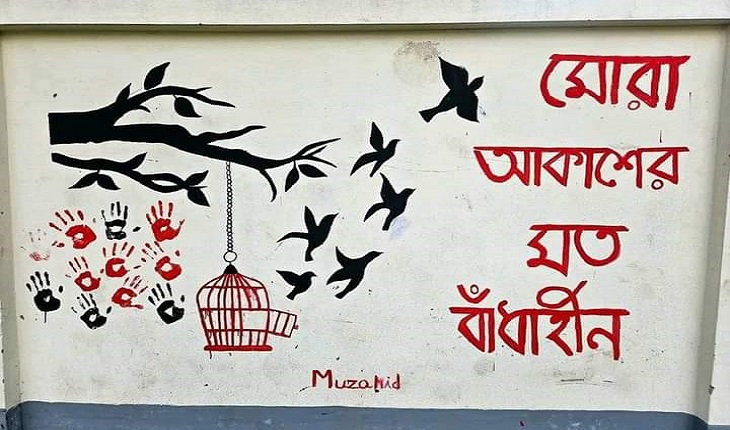 মোরা
আকাশের
মত
বাঁধাহীন
Muzahid